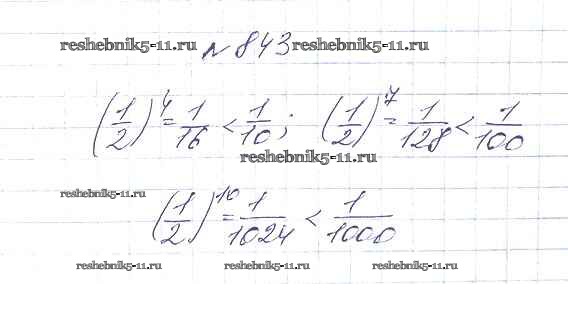 reshebnik5-11.ru № 843 reshebnik5-11.ru
(1/2)^4 = 1/16 < 1/10; (1/2)^7 = 1/128 < 1/100
reshebnik5-11.ru
reshebnik5-11.ru
(1/2)^10 = 1/1024 < 1/1000
reshebnik5-11.ru reshebnik5-11.ru reshebnik5-11.ru